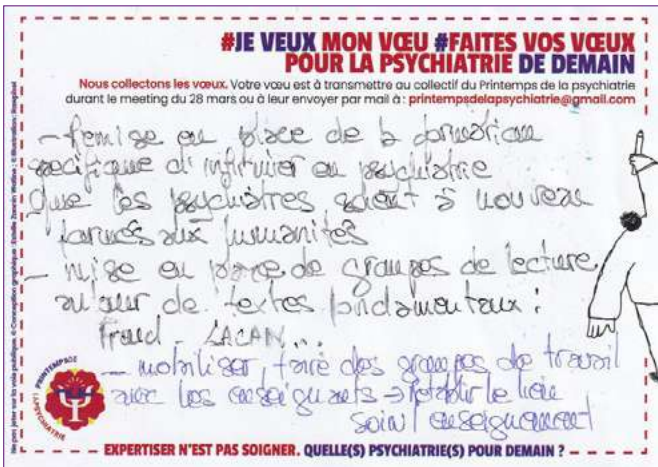 #JE VEUX MON VŒU #FAITES VOS VŒUX
POUR LA PSYCHIATRIE DE DEMAIN
Nous collectons les vœux. Votre vœu est à transmettre au collectif du Printemps de la psychiatrie
durant le meeting du 28 mars ou à leur envoyer par mail à : printempsdelapsychiatrie@gmail.com
- Remise en place de la formation
spécifique d'infirmier en psychiatrie
Que les psychiatres soient à nouveau
formés aux humanités
- mise en place de groupes de lecture
autour de textes fondamentaux :
Freud - LACAN...
- mobiliser, faire des groupes de travail
avec les enseignants → rétablir le lien
soin/enseignement
PRINTEMPS DE
LA PSYCHIATRIE
EXPERTISER N'EST PAS SOIGNER. QUELLE(S) PSYCHIATRIE(S) POUR DEMAIN ?
Ne pas jeter sur la voie publique. © Conception graphique :